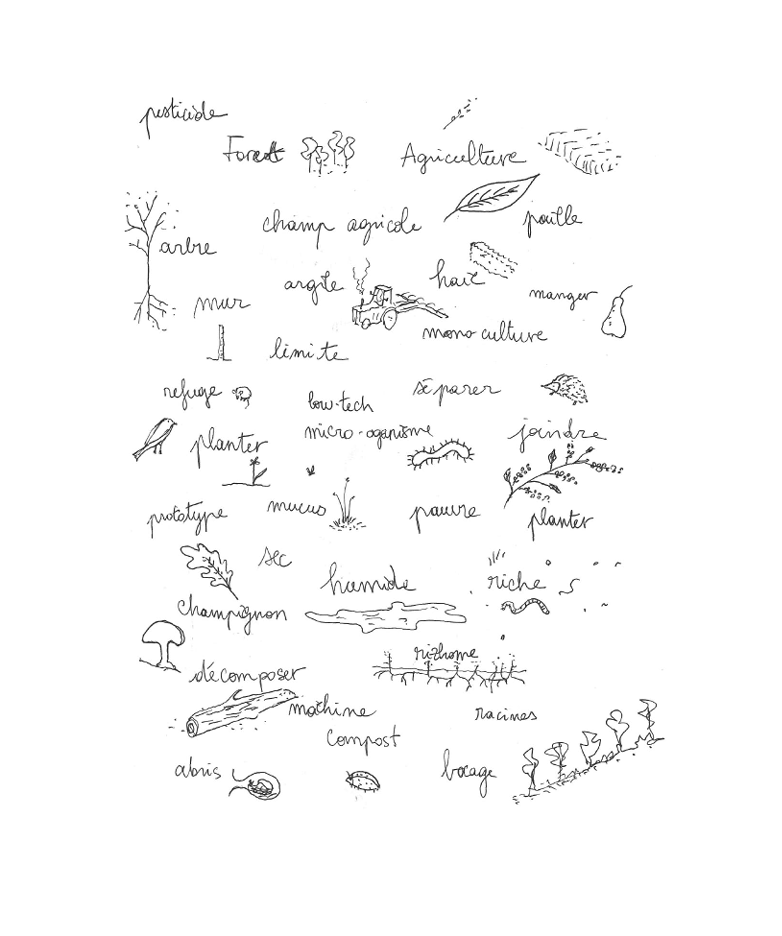 pesticide
Forest
Agriculture
champ agricole
paille
arbre
argile
haie
manger
mur
mono culture
limite
refuge
low-tech
séparer
micro-oganisme
joindre
planter
mucus
pauvre
prototype
planter
sec
humide
riche
champignon
rizhome
décomposer
machine
racines
compost
abris
bocage